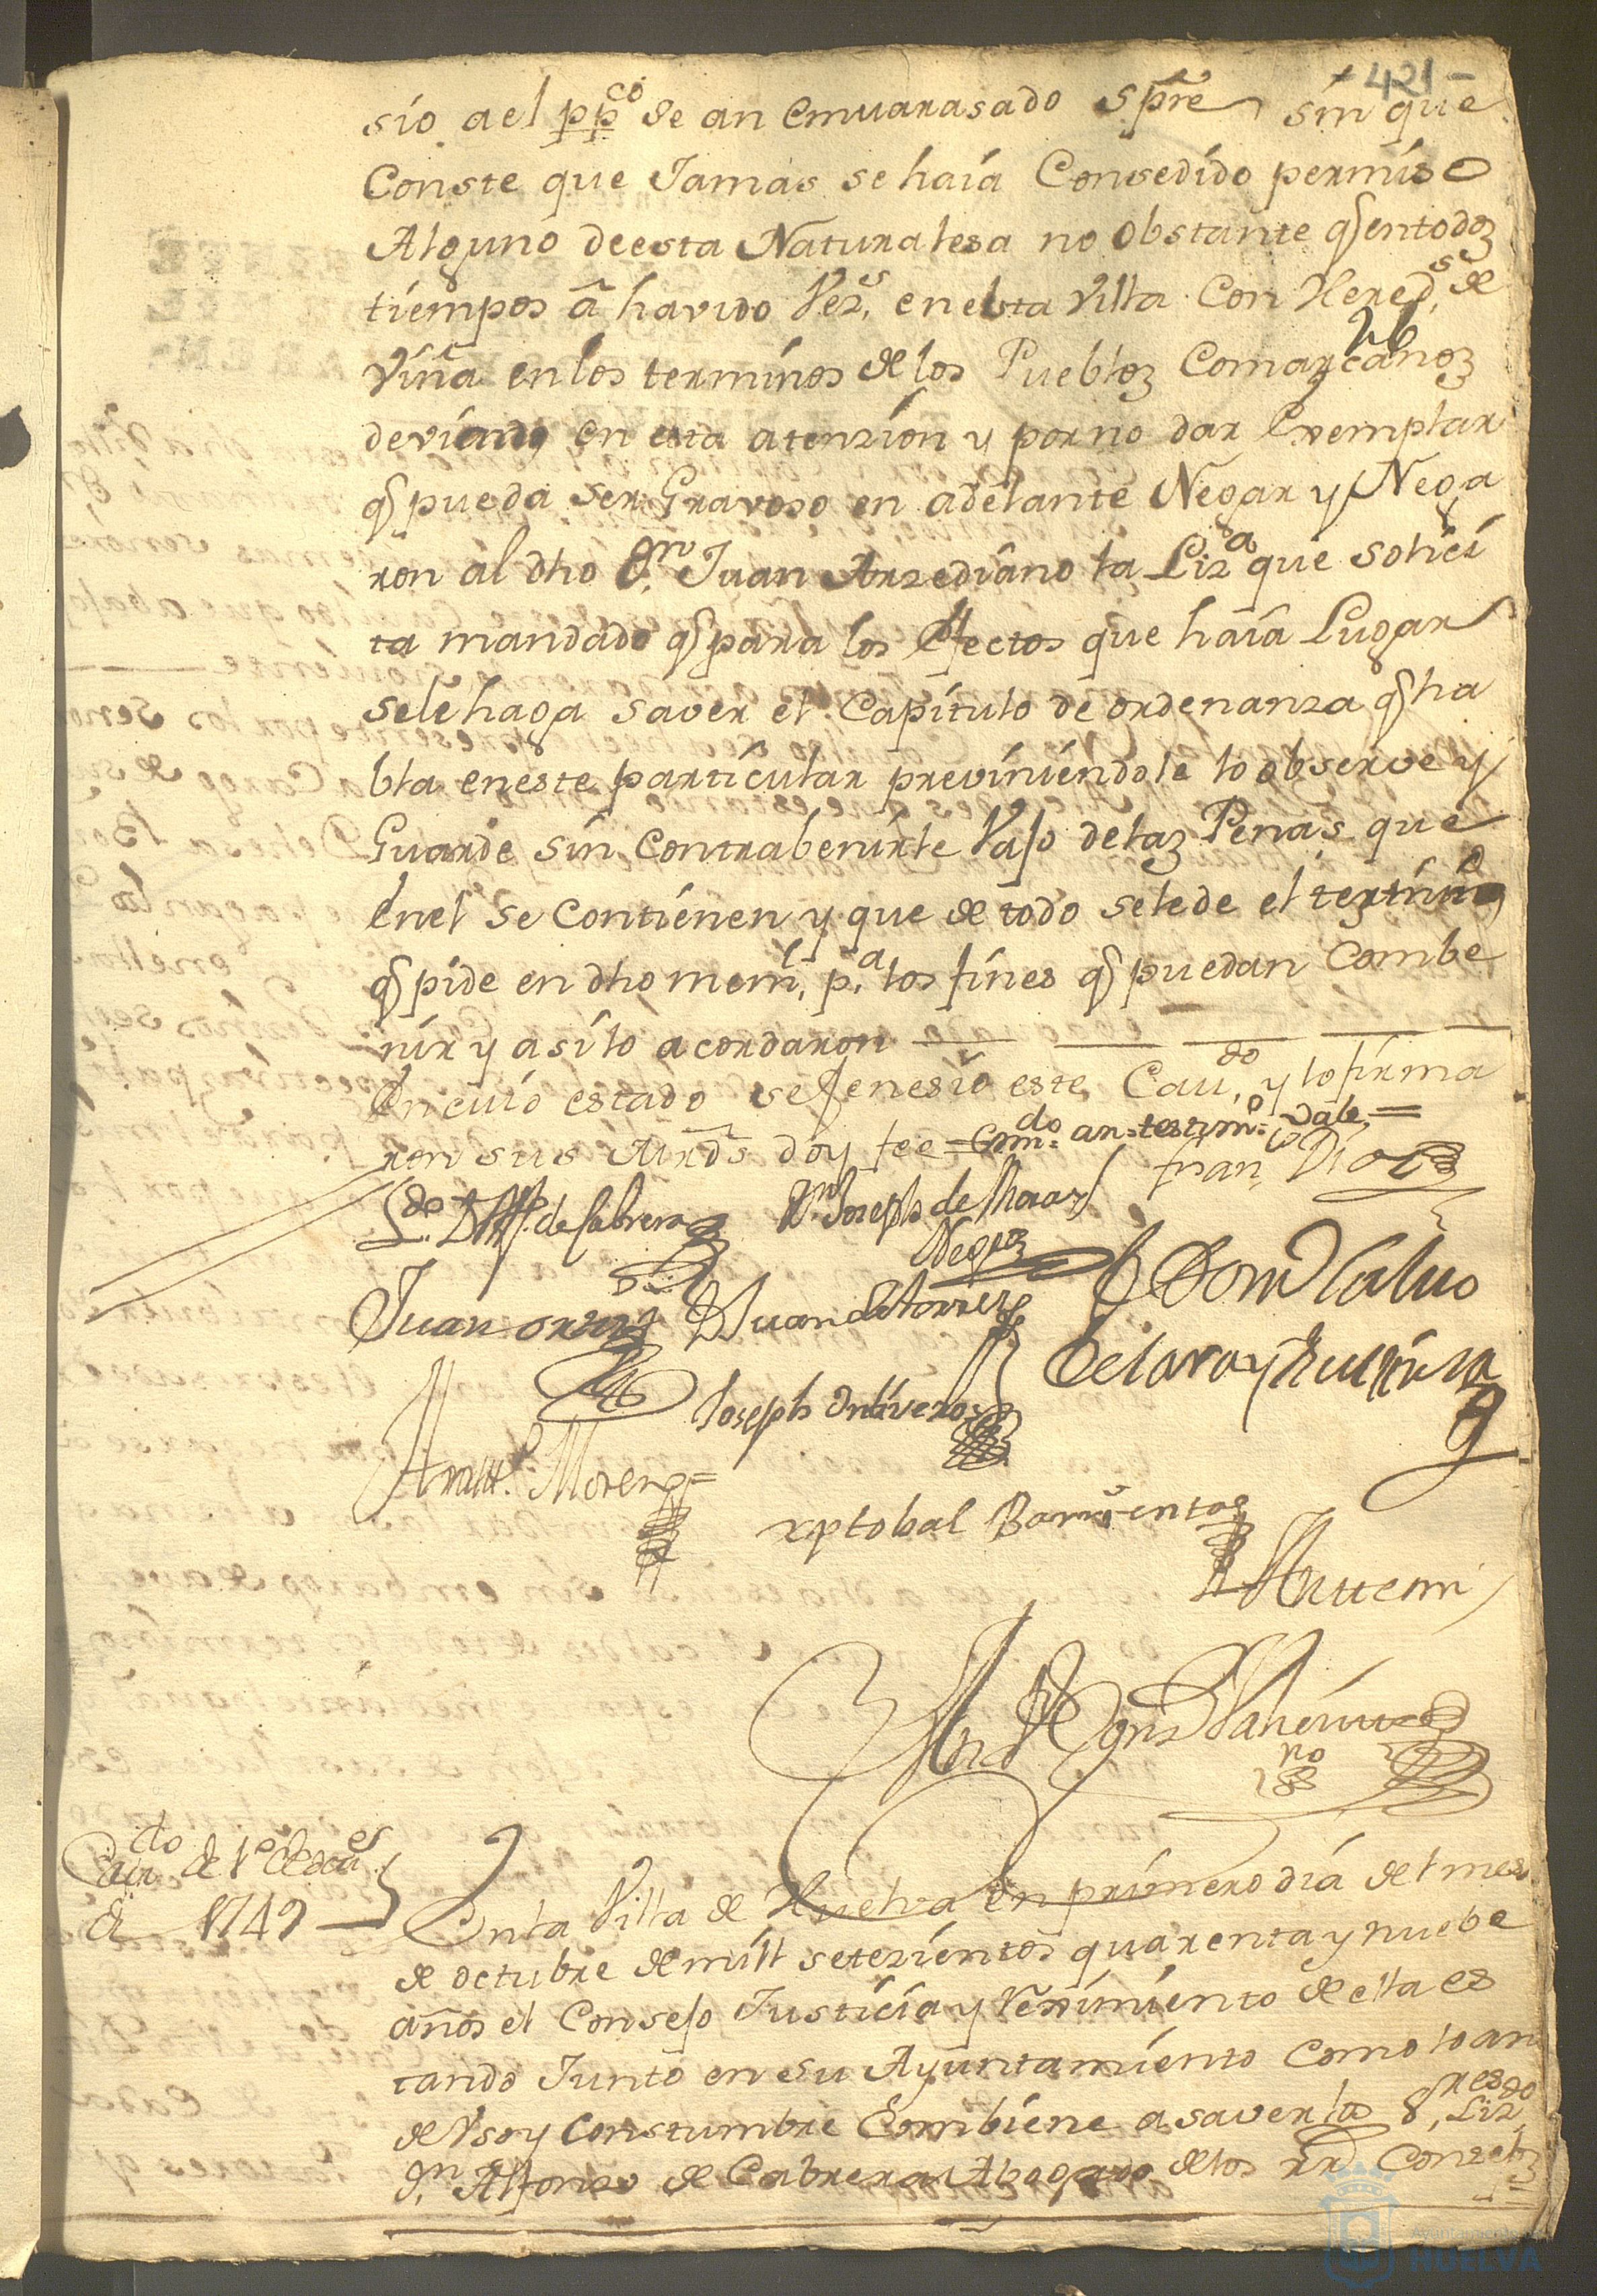 + 421 -
sio a el pp.co se an emvarasado spre sin que
Conste que Jamas se haia Consedido permiso
Alguno de esta Naturalesa no Obstante q en todos
tiempos â havido Vez.s en esta Villa con Hered.s de
Viña en los terminos de los Pueblos Comarcanos
deviendo en esta atenzion y por no dar Exemplar
q pueda ser Gravoso en adelante Negar y Nega
ron al dho D.n Juan Arzediano la Liz.a que solici
ta mandado q para los Efectos que haia Lugar
se le haga saver el Capitulo de ordenanza q ha
bla en este particular previniendole lo observe y
Guarde sin Contrabenirle Vajo de las Penas que
En el se Contienen y que de todo se le de el testimo
q pide en dho mem.l p.a los fines q puedan Combe
nir y asi lo acordaron
En cuio estado se fenesio este Cav.do y lo firma
ron sus Mrds doy fee = Enm.do an = testim.o Vale =
L.do D. Alf.o de Cabrera D.n Joseph de Mora
Negro
Fran.co Dias
Juan Ortiz D Juan de Torres D Dom Calvo
de Lara y
Joseph Ontiveros
Moreno =
xptobal Barrientos
Ante mi
no
Cav.do de 1º de Octu.es
de 1749
En la Villa de Huelva en primero dia del mes
de octubre de mill setezientos quarenta y nuebe
años el Consejo Justicia y Reximiento de ella es
tando Junto en su Ayuntamiento como lo an
de Vso y Constumbre Combiene a saver los S.res Liz.do
D.n Alfonso de Cabrera Abogado de los RR Consejos
Ayuntamiento de
HUELVA